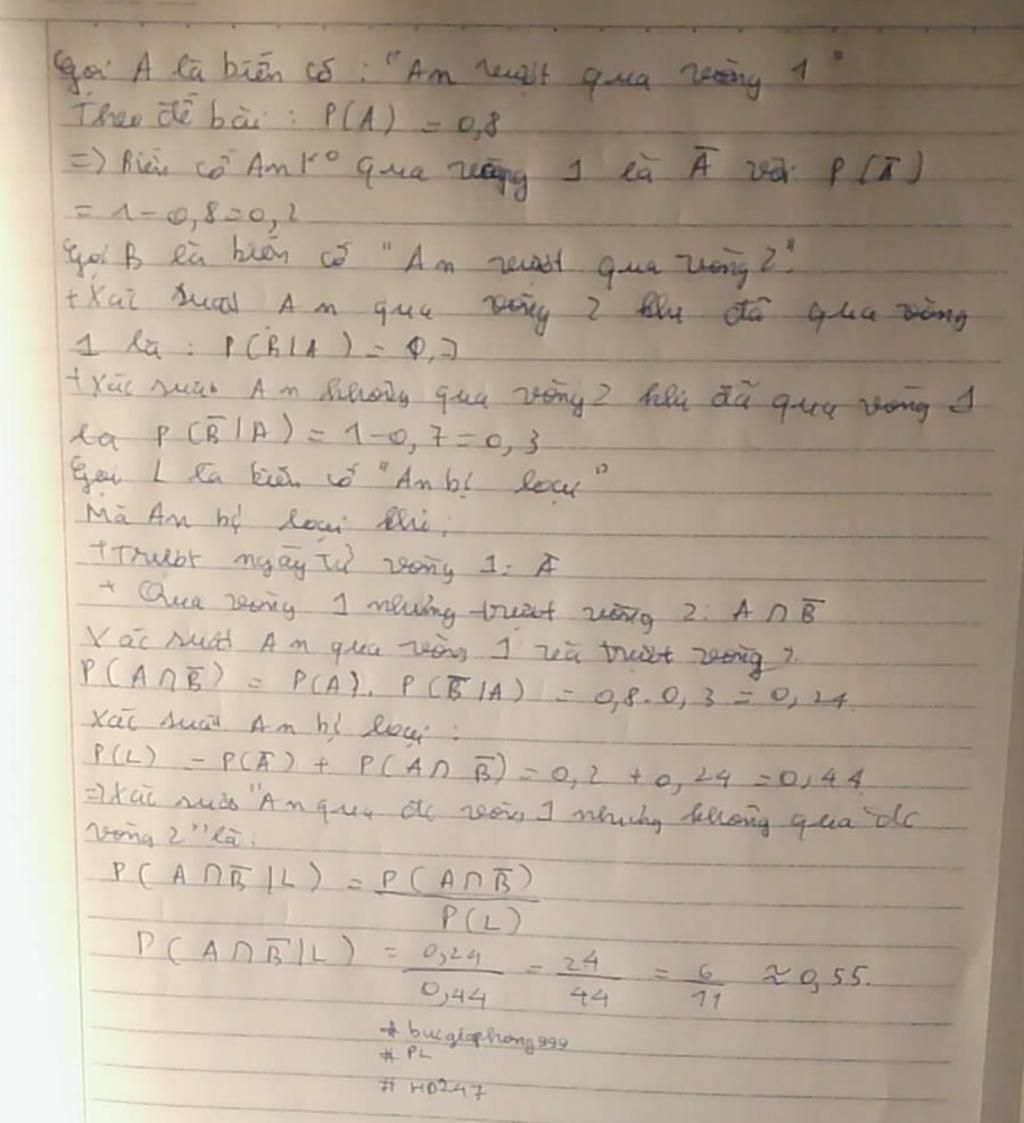 Gọi A là biến cố : "An vượt qua vòng 1"
Theo đề bài : P(A) = 0,8
=> Biến cố An k° qua vòng 1 là Ā với P(Ā)
= 1 - 0,8 = 0,2
Gọi B là biến cố "An vượt qua vòng 2".
+ Xác suất An qua vòng 2 khi đã qua vòng
1 là : P(B|A) = 0,7
+ Xác suất An không qua vòng 2 khi đã qua vòng 1
là P(B̄|A) = 1-0,7 = 0,3
Gọi L là biến cố "An bị loại"
Mà An bị loại khi:
+ Trượt ngay từ vòng 1: Ā
+ Qua vòng 1 nhưng trượt vòng 2: A ∩ B̄
Xác suất An qua vòng 1 và trượt vòng 2
P(A ∩ B̄) = P(A). P(B̄|A) = 0,8.0,3 = 0,24
Xác suất An bị loại :
P(L) = P(Ā) + P(A ∩ B̄) = 0,2 + 0,24 = 0,44
=> Xác suất "An qua đc vòng 1 nhưng không qua đc
vòng 2" là:
P(A ∩ B̄|L) = P(A ∩ B̄)
P(L)
P(A ∩ B̄|L) = 0,24/0,44 = 24/44 = 6/11 ≈ 0,55.
# bucgiaphong999
# PL
# HD247